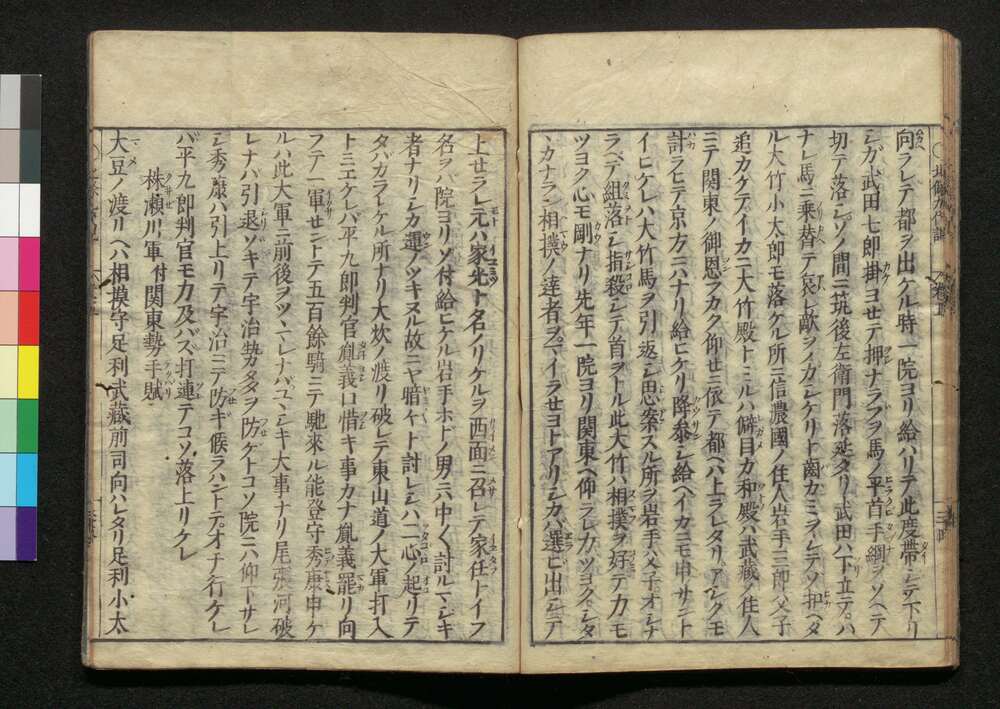 向ラレテ都ヲ出ケル時一院ヨリ給ハリテ此度帯シテ下リ
シガ武田七郎掛ヨセテ押ナラブヲ馬ノ平首手綱ヲソヘテ
切テ落シソノ間ニ筑後左衛門落延タリ武田ハ下立テハ
ナレ馬ニ乗替テ哀レ敵ヲノガシケリト歯カミヲシテソ扣ヘタ
ル大竹小太郎モ落ケル所ニ信濃國ノ住人岩手三郎父子
追カケテイカニ大竹殿トミルハ僻目カ和殿ハ武蔵ノ住人
ニテ関東ノ御恩ヲカク仰セニ依テ都ヘハ上ラレタリアシクモ
計ラヒテ京方ニハナリ給ヒケリ降参シ給ヘイカニモ申サント
イヒケレハ大竹馬ヲ引返シ思案スル所ヲ岩手父子オシナ
ラベテ組落シ指殺シテ首ヲトル此大竹ハ相撲ヲ好テカモ
ツヨク心モ剛ナリ先年一院ヨリ関東ヘ仰ラレカツヨクシタ
、カナラン相撲ノ達者ヲマイラセヨトアリシカバ選ビ出シテ
上セラレ元ハ家光ト名ノリケルヲ西面ニ召レテ家任トイフ
名ヲハ院ヨリソ付給ヒケル岩手ホドノ男ニ六中〱討ルマシキ
者ナリシカ運ノツキヌル故ニヤ暗々ト討レシハ二心ノ起リテ
タバガラレケル所ナリ大炊ノ渡リ破レテ東山道ノ大軍打入
トミエケレバ平九郎判官胤義口惜キ事カナ胤義罷リ向
フテ一軍セントテ五百餘騎ニテ馳來ル能登守秀康申ケ
ルハ此大軍ニ前後ヲツヽマレナバユヽシキ大事ナリ尾張河破
レナハ引退ソキテ宇治勢タヲ防ゲトコソ院ニハ仰下サレ
シ秀康ハ引上リテ宇治ニテ防ギ候ラハントテオチ行ケレ
バ平九郎判官モ力及バズ打連テコソ落上リケレ
株瀬川軍付関東勢手賦
大豆ノ渡リヘハ相摸守足利武蔵前司向ハレタリ足利小太